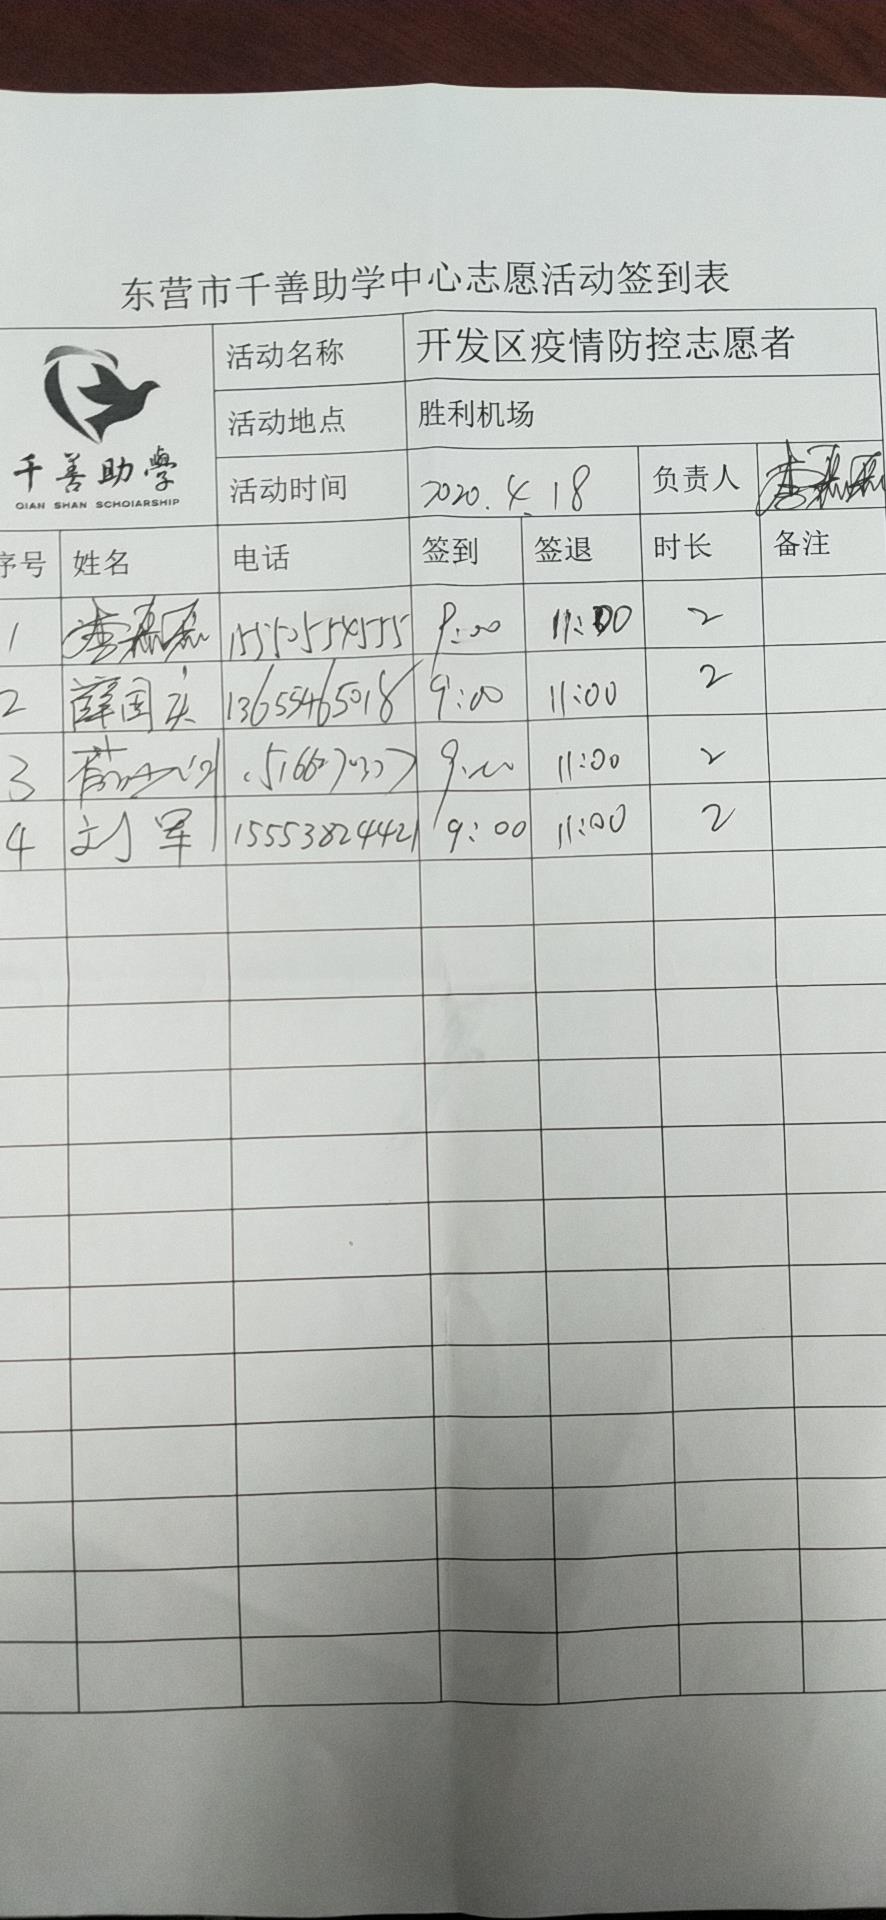 东营市千善助学中心志愿活动签到表
千善助學
QIAN SHAN SCHOIARSHIP
活动名称 开发区疫情防控志愿者
活动地点 胜利机场
活动时间 2020.4.18 负责人
序号 姓名 电话 签到 签退 时长 备注
1 15550554555 9:00 11:00 2
2 薛国庆 13655465018 9:00 11:00 2
3 9:00 11:00 2
4 刘军 15553824421 9:00 11:00 2